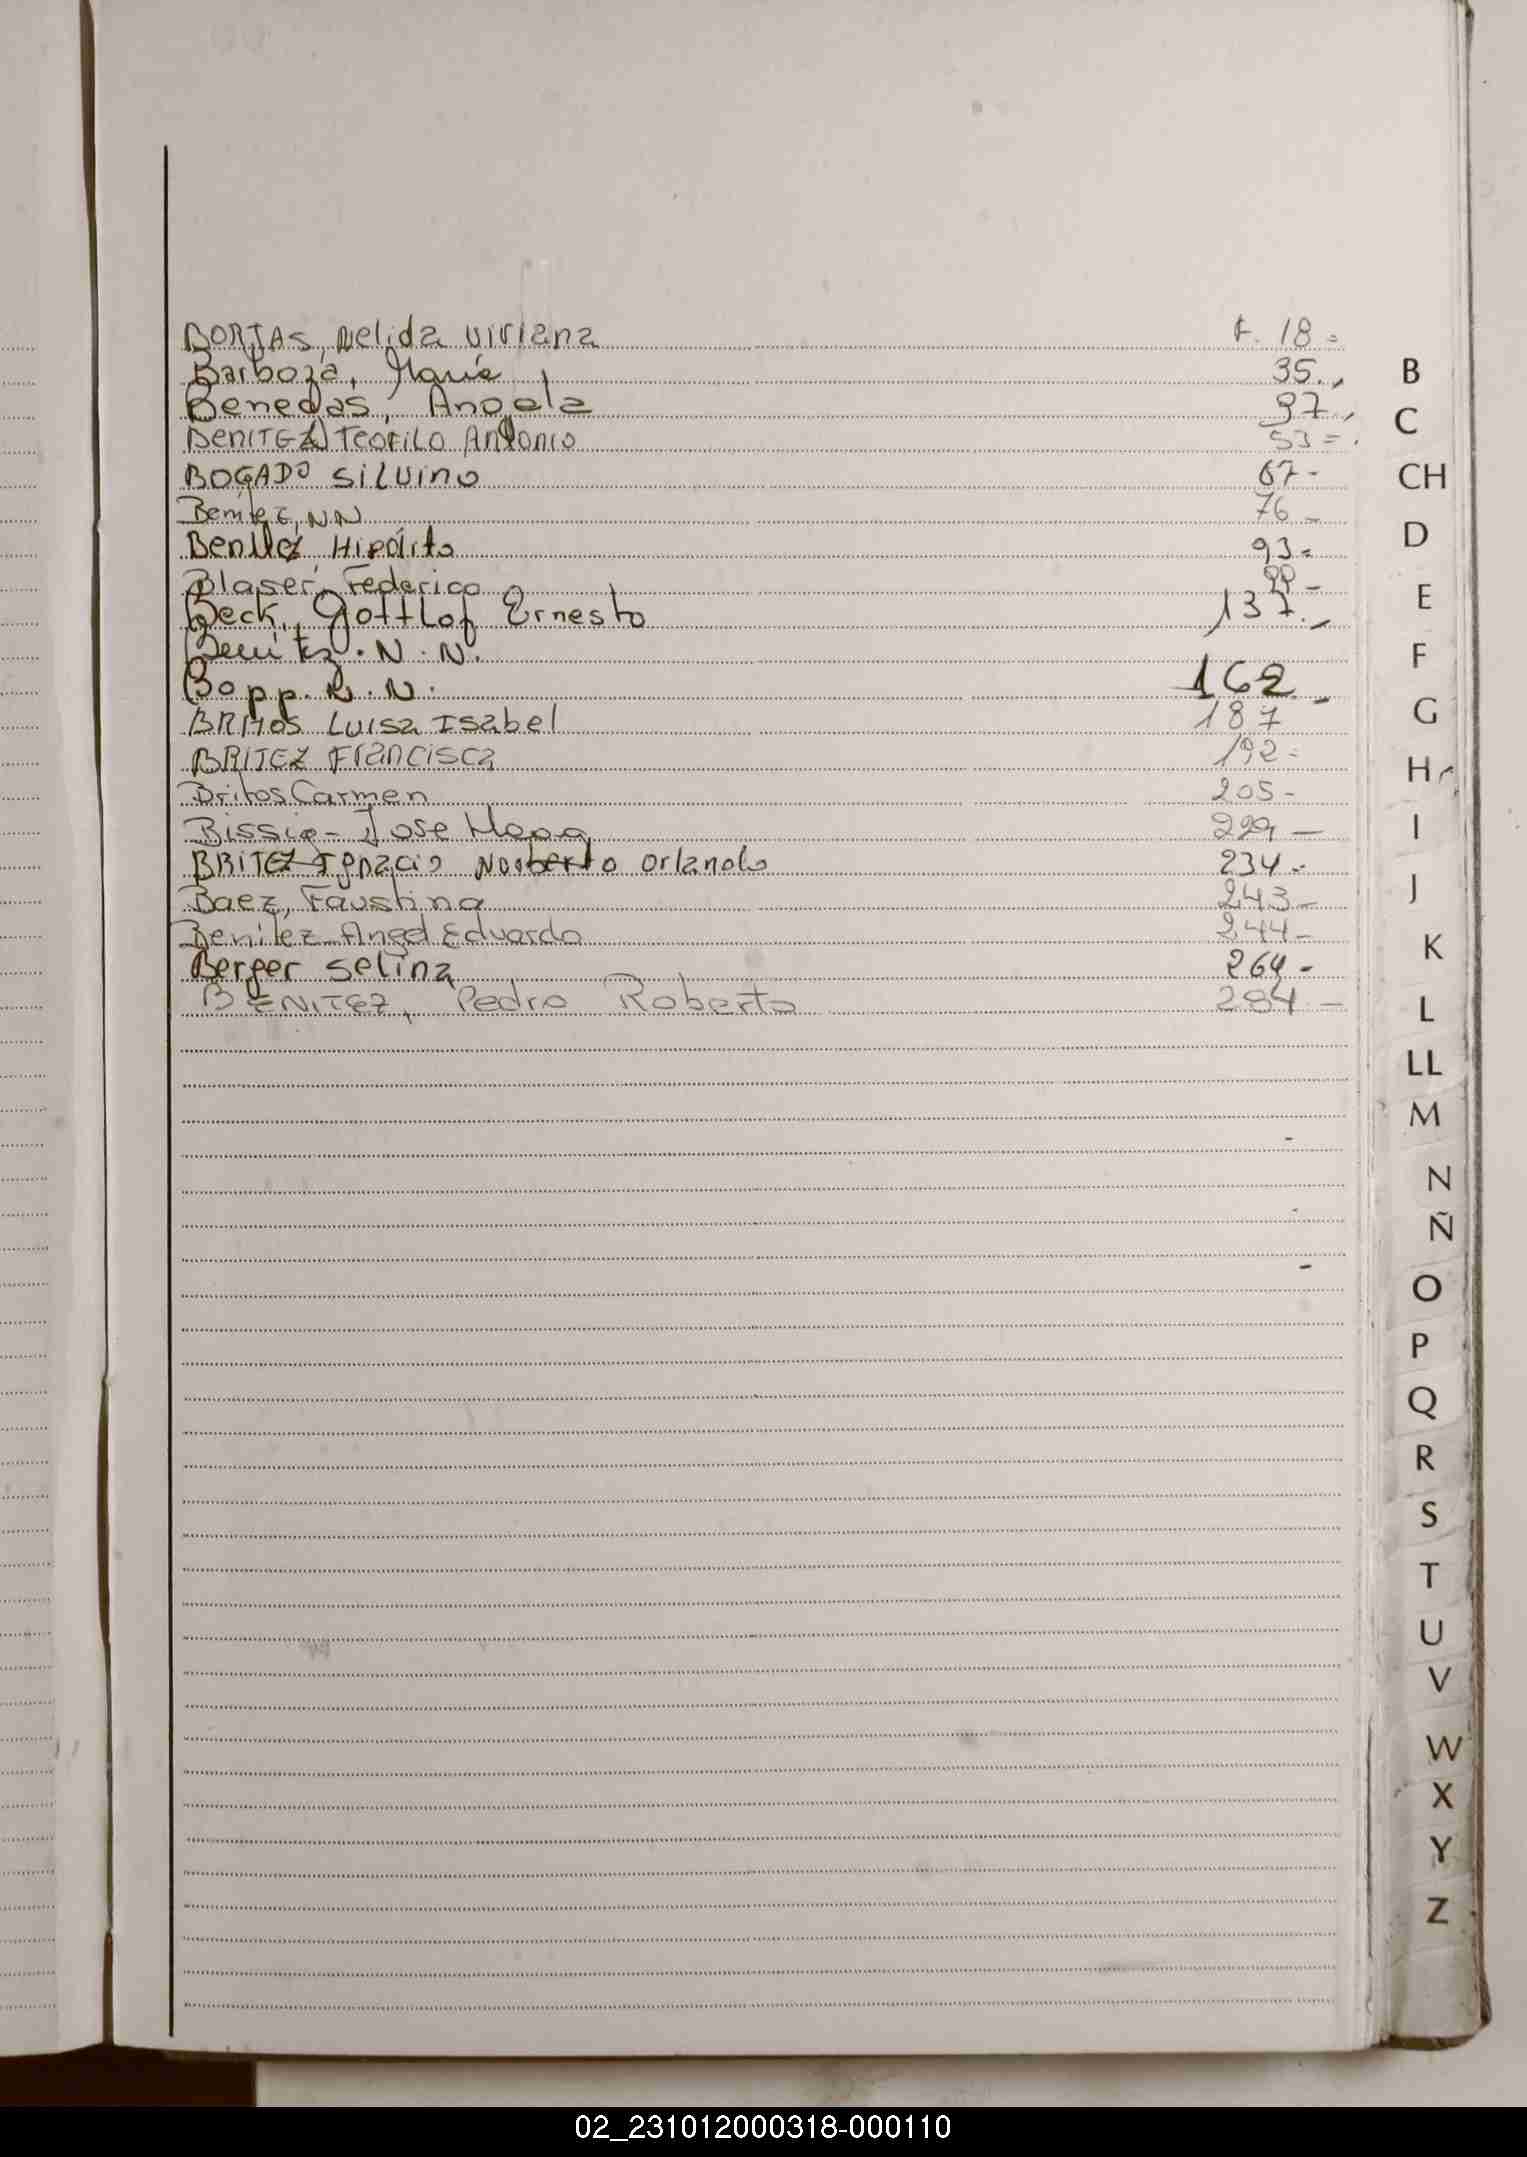 BORJAS, Nelida Viviana F. 18=
Barboza, Maria 35.,
Benedas, Angela 37.,
BENITEZ TEOFILO Antonio 53=.
BOGADO SILVINO 67-
Benitez, NN 76-
Benitez, Hipólito 93=
Blaser, Federico 99-
Beck, Gottlof Ernesto 137.,-
Benitez. N. N.
Bopp. R. N. 162.-
BRITOS LUISA ISabel 187
BRITEZ Francisca 192-
Britos Carmen 205-
Bissig- Jose 229-
BRITEZ Ignacio Norberto Orlando 234.-
Baez, Faustina 243-
Benitez Angel Eduardo 244-
Berger Selina 264-
BENITEZ, Pedro Roberto 284-
B
C
CH
D
E
F
G
H
I
J
K
L
LL
M
N
Ñ
O
P
Q
R
S
T
U
V
W
X
Y
Z
02_231012000318-000110